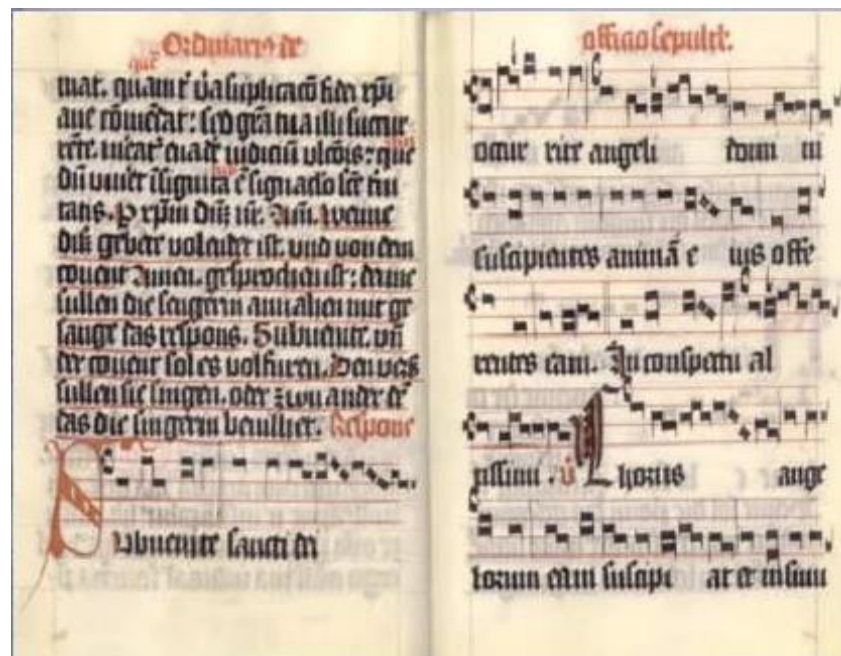 Ordinariꝰ de
mat. quam ē v̄a suplicacō
sed gr̄a tua illi succur
iudiciū vlcōis: que
dū viueret ē
tatis. P xp̄m dn̄m nr̄. Am̄. Wenne
diß gebete volendet ist. vnd von dem
couent Amen. gesprochen ist: danne
sullen die sengerin anuahen mit ge
sange das respons. Subuenite. vn̄
der couent sol es volfuren. Den vers
sullen sie singen. oder zwu ander
das die singerin beuilhet. Respons
Subuenite sancti dei
officio sepult.
occur rite angeli domi ni
suscipientes animā e ius offe
rentes eam. In conspectu al
tissimi. V̄ Chorus ange
lorum eam suscipi at et in sinu